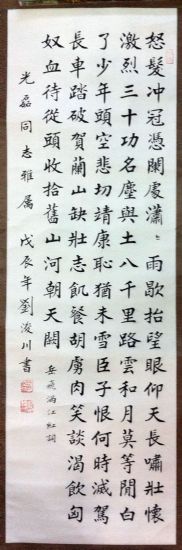 怒髮冲冠憑闌處瀟〻雨歇抬望眼仰天長嘯壯懷
激烈三十功名塵與土八千里路雲和月莫等閒白
了少年頭空悲切靖康恥猶未雪臣子恨何時滅駕
長車踏破賀蘭山缺壯志飢餐胡虜肉笑談渴飲匈
奴血待從頭收拾舊山河朝天闕 岳飛滿江紅詞
光磊同志雅属 戊辰年劉浚川書